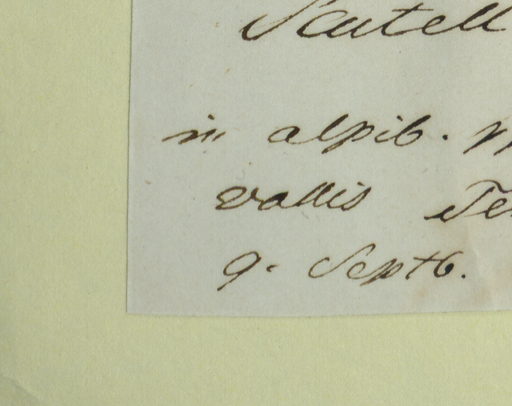 Scutell
in alpib.
vallis Te
9. Septb.